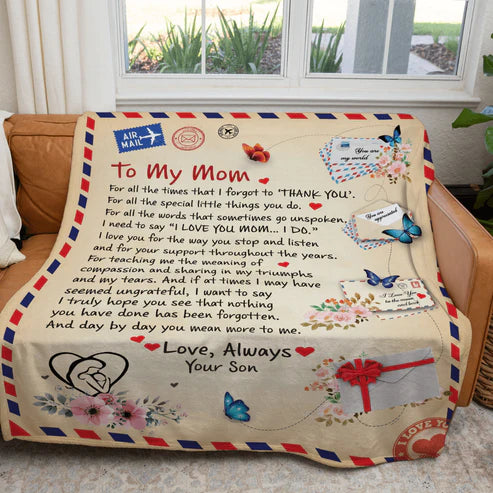 AIR
MAIL
To My Mom
For all the times that I forgot to 'THANK YOU'.
For all the special little things you do.
For all the words that sometimes go unspoken.
I need to say "I LOVE YOU MOM... I DO."
I love you for the way you stop and listen
and for your support throughout the years.
For teaching me the meaning of
compassion and sharing in my triumphs
and my tears. And if at times I may have
seemed ungrateful, I want to say
I truly hope you see that nothing
you have done has been forgotten.
And day by day you mean more to me.
Love, Always
Your Son
You are
my world
You are appreciated
I Love You
to the moon
and back
I LOVE YOU